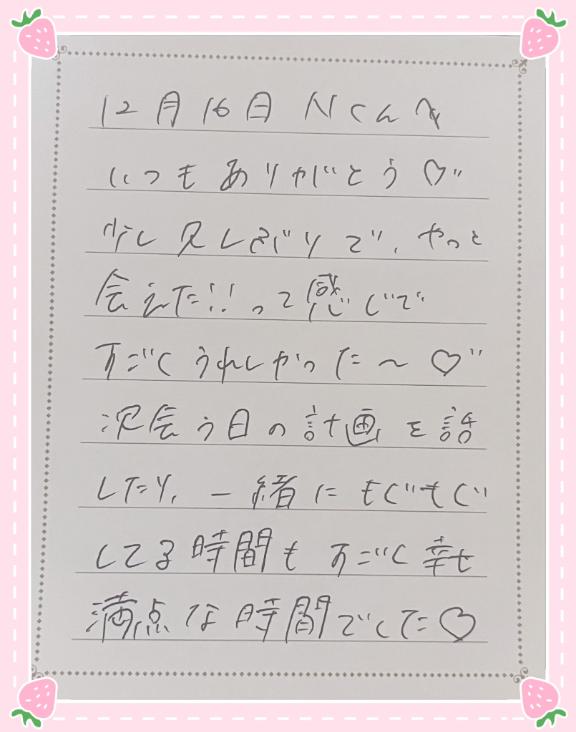 12月16日 Nくんへ
いつもありがとう♡"
少し久しぶりで、やっと
会えた!!って感じで
すごくうれしかった〜♡"
次会う日の計画を話
したり、一緒にもぐもぐ
してる時間もすごく幸せ
満点な時間でした♡